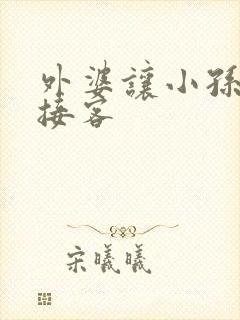 外婆讓小孫
接客
宋曦曦